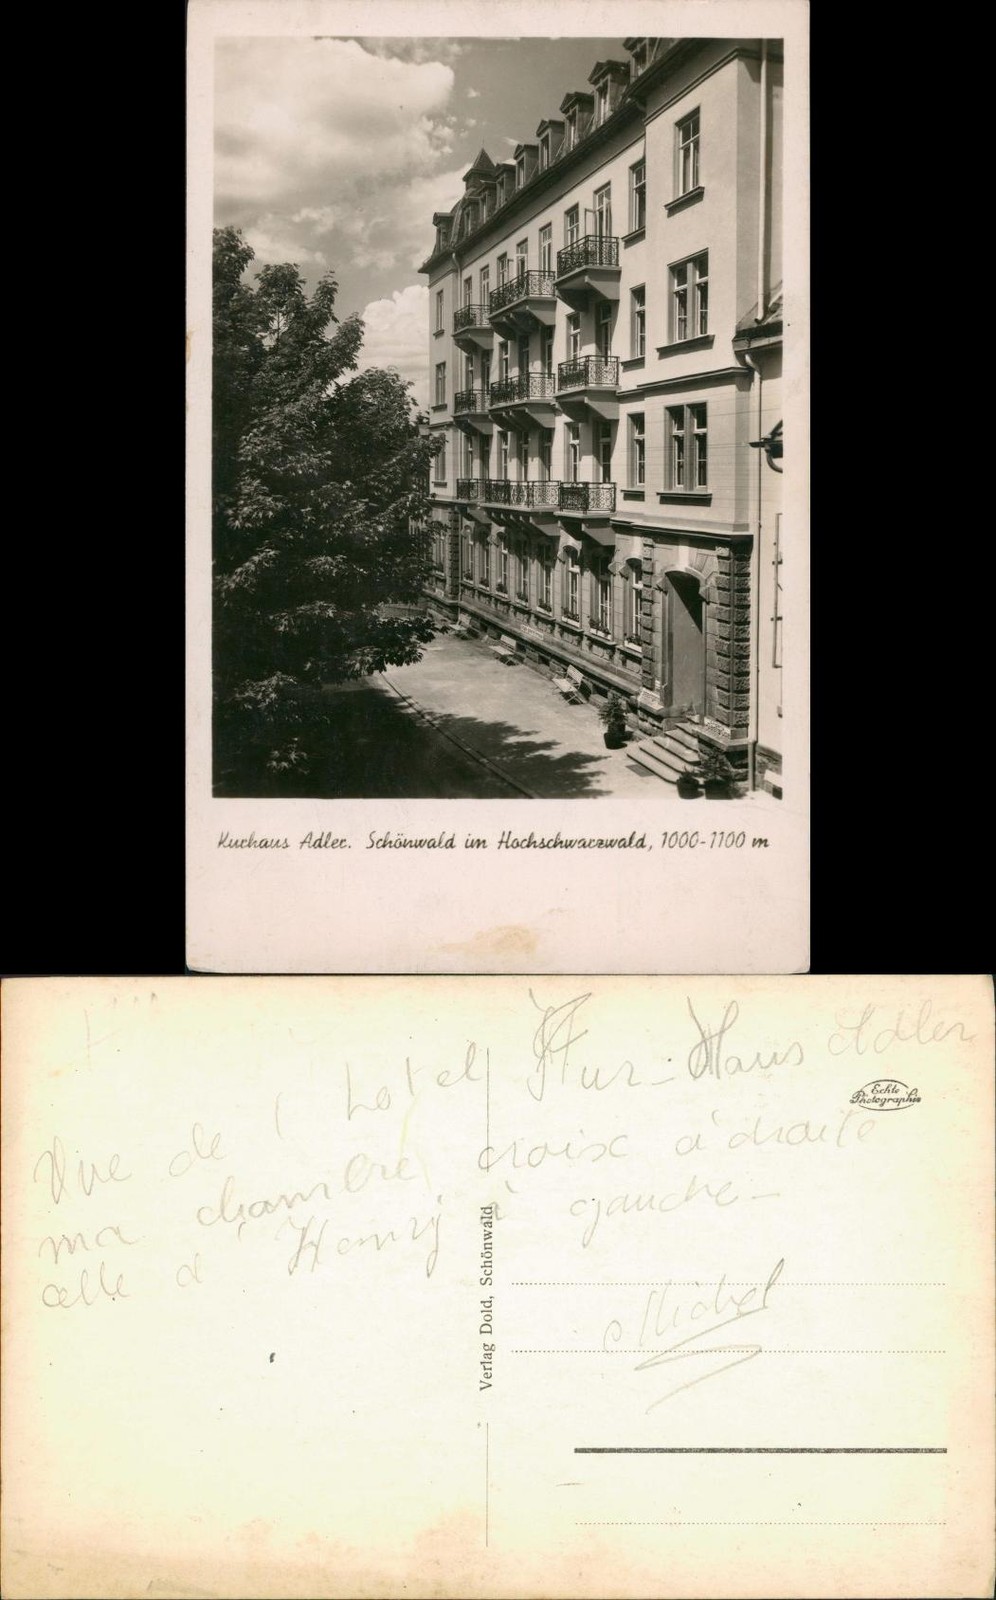 Kurhaus Adler. Schönwald im Hochschwarzwald, 1000-1100 m
Vue de l'hotel Kur-Haus Adler
Echte
Photographie
ma chambre croix à droite
celle d'Henry à gauche-
Michel
Verlag Dold, Schönwald